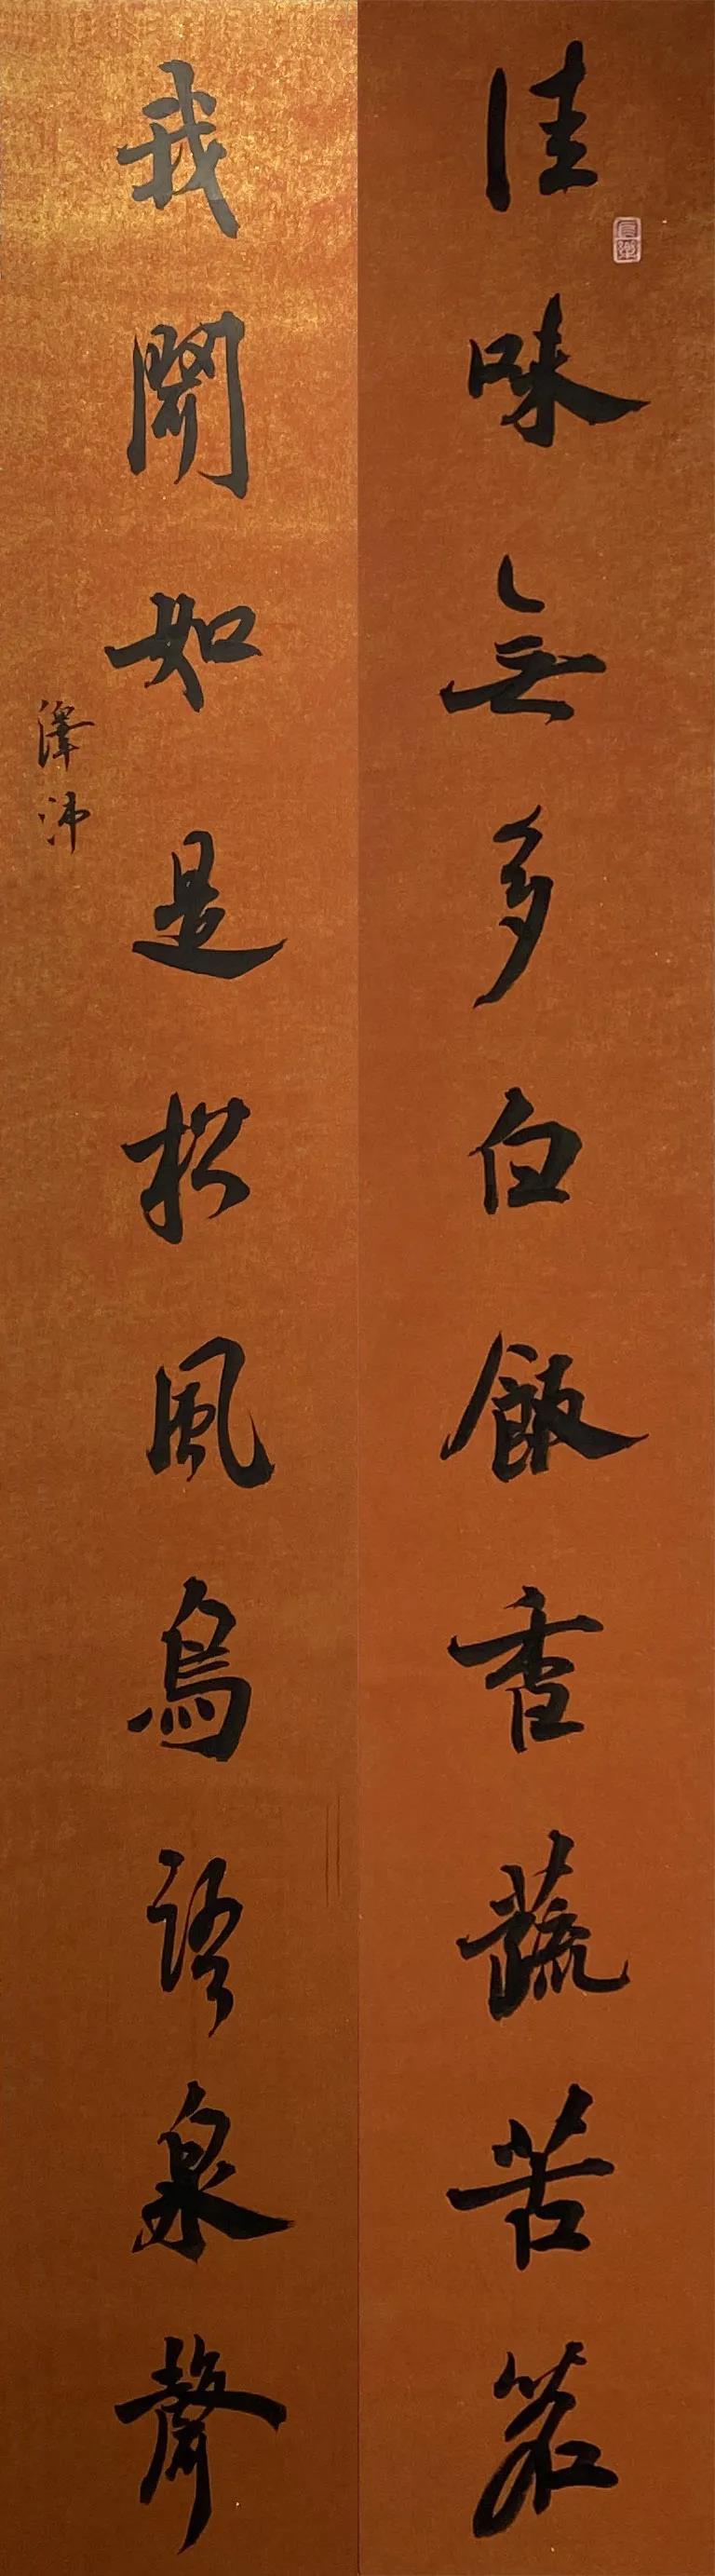 佳味無多白飯香蔬苦茗
我聞如是松風鳥語泉聲
澤沛